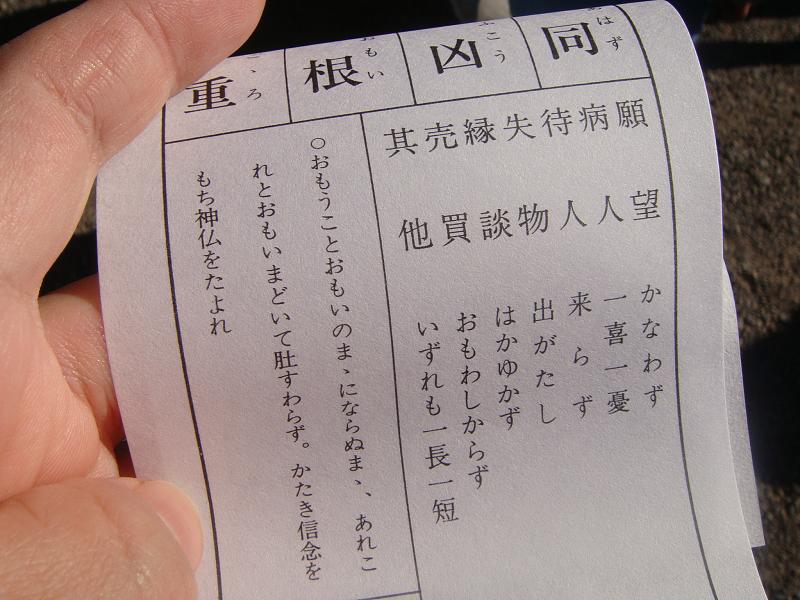 同 はず
凶 こう
根 おもい
重 ころ
願望 かなわず
病人 一喜一憂
待人 来らず
失物 出がたし
縁談 はかゆかず
売買 おもわしからず
其他 いずれも一長一短
○おもうことおもいのまゝにならぬまゝ、あれこ
れとおもいまどいて肚すわらず。かたき信念を
もち神仏をたよれ